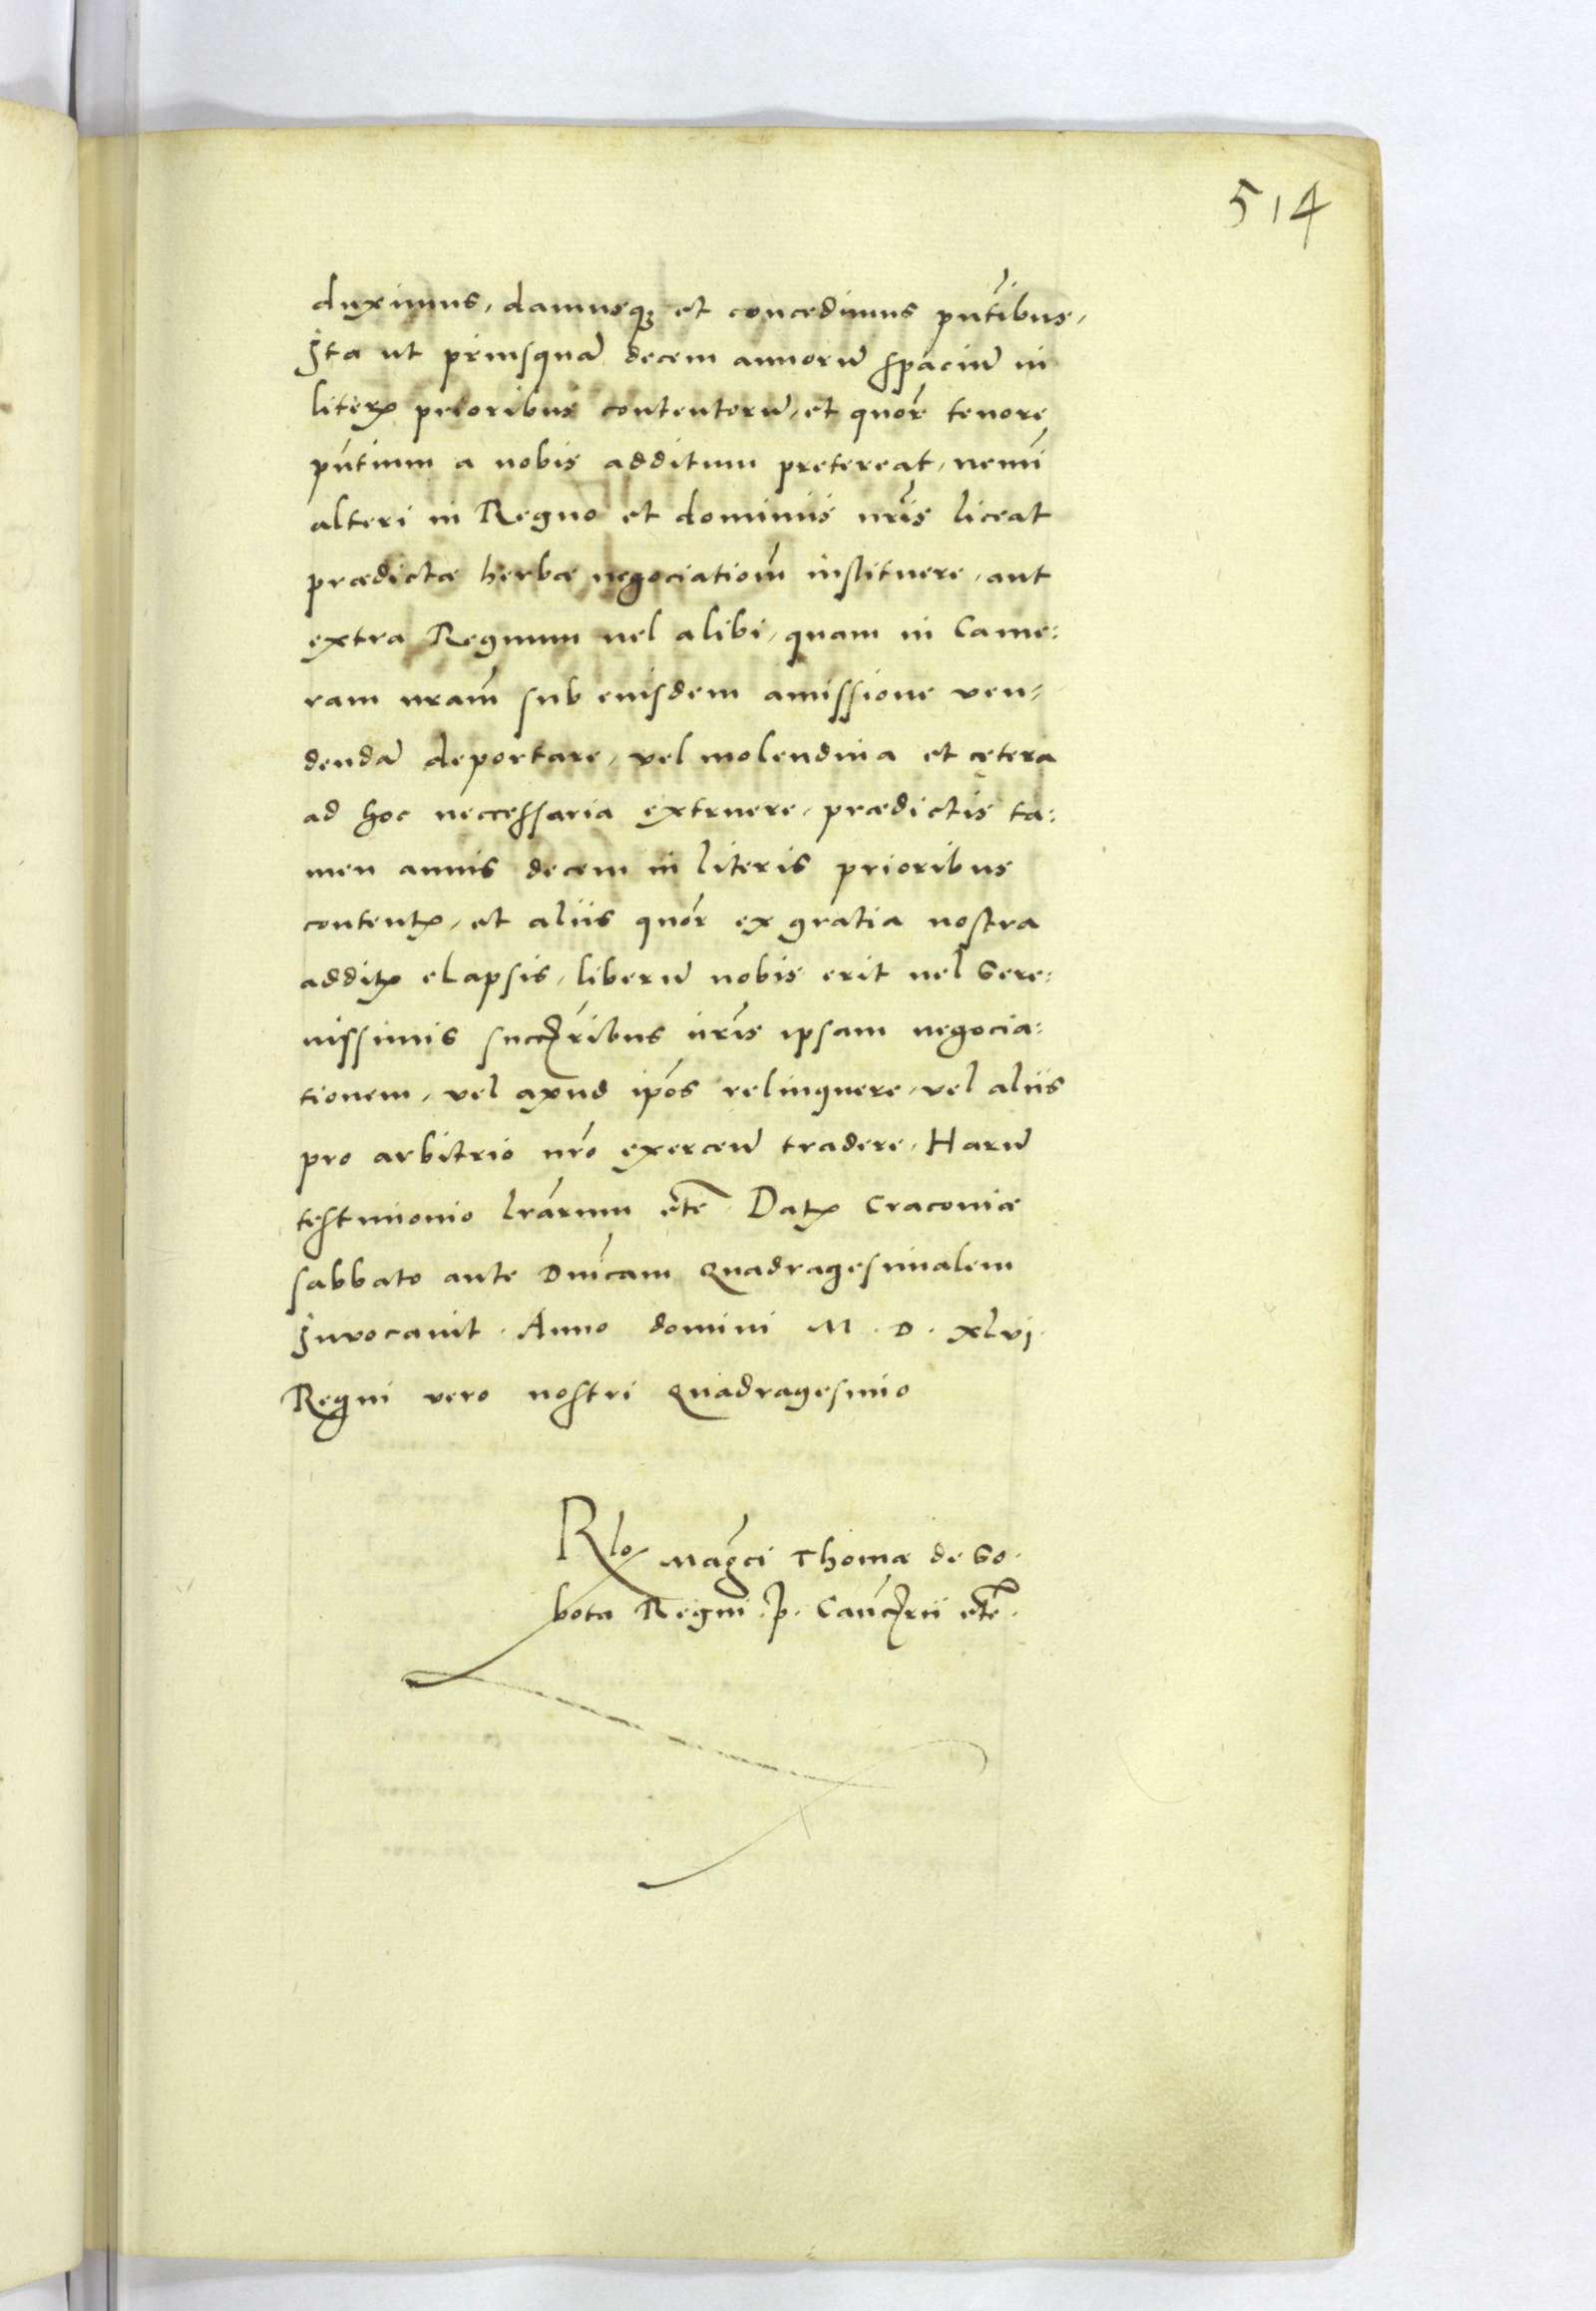 514
duximus, damusq₃ et concedimus pn̄tibus,
Ita ut priusquā decem annorū spaciū in
literꝭ prioribus contentorū, et quor̄ tenore
pn̄tium a nobis additum pretereat, nemī
alteri in Regno et dominiis nr̄is liceat
prædictæ herbæ negociationē instituere, aut
extra Regnum uel alibi, quam in Came:
ram nram̄ sub eiusdem amissione ven=
dendā deportare, vel molendina et cętera
ad hoc neccessaria extruere, prædictis ta:
men annis decem in literis prioribus
contentꝭ, et aliis quor̄ ex gratia nostra
additꝭ elapsis, liberū nobis erit uel Sere:
nissimis succr̄ibus nr̄is ipsam negocia:
tionem, vel apud ip̄os relinquere, vel aliis
pro arbitrio nr̄o exercenū tradere, Harū
testimonio lr̄arum etc̄ Datꝭ Cracoviæ
sabbato ante Dnīcam Quadragesimalem
Invocavit. Anno domini M. D. xlvj.
Regni vero nostri Quadragesimo
Rlo Magci Thomæ de So.
bota Regni. p. Canc̄rii etc̄.